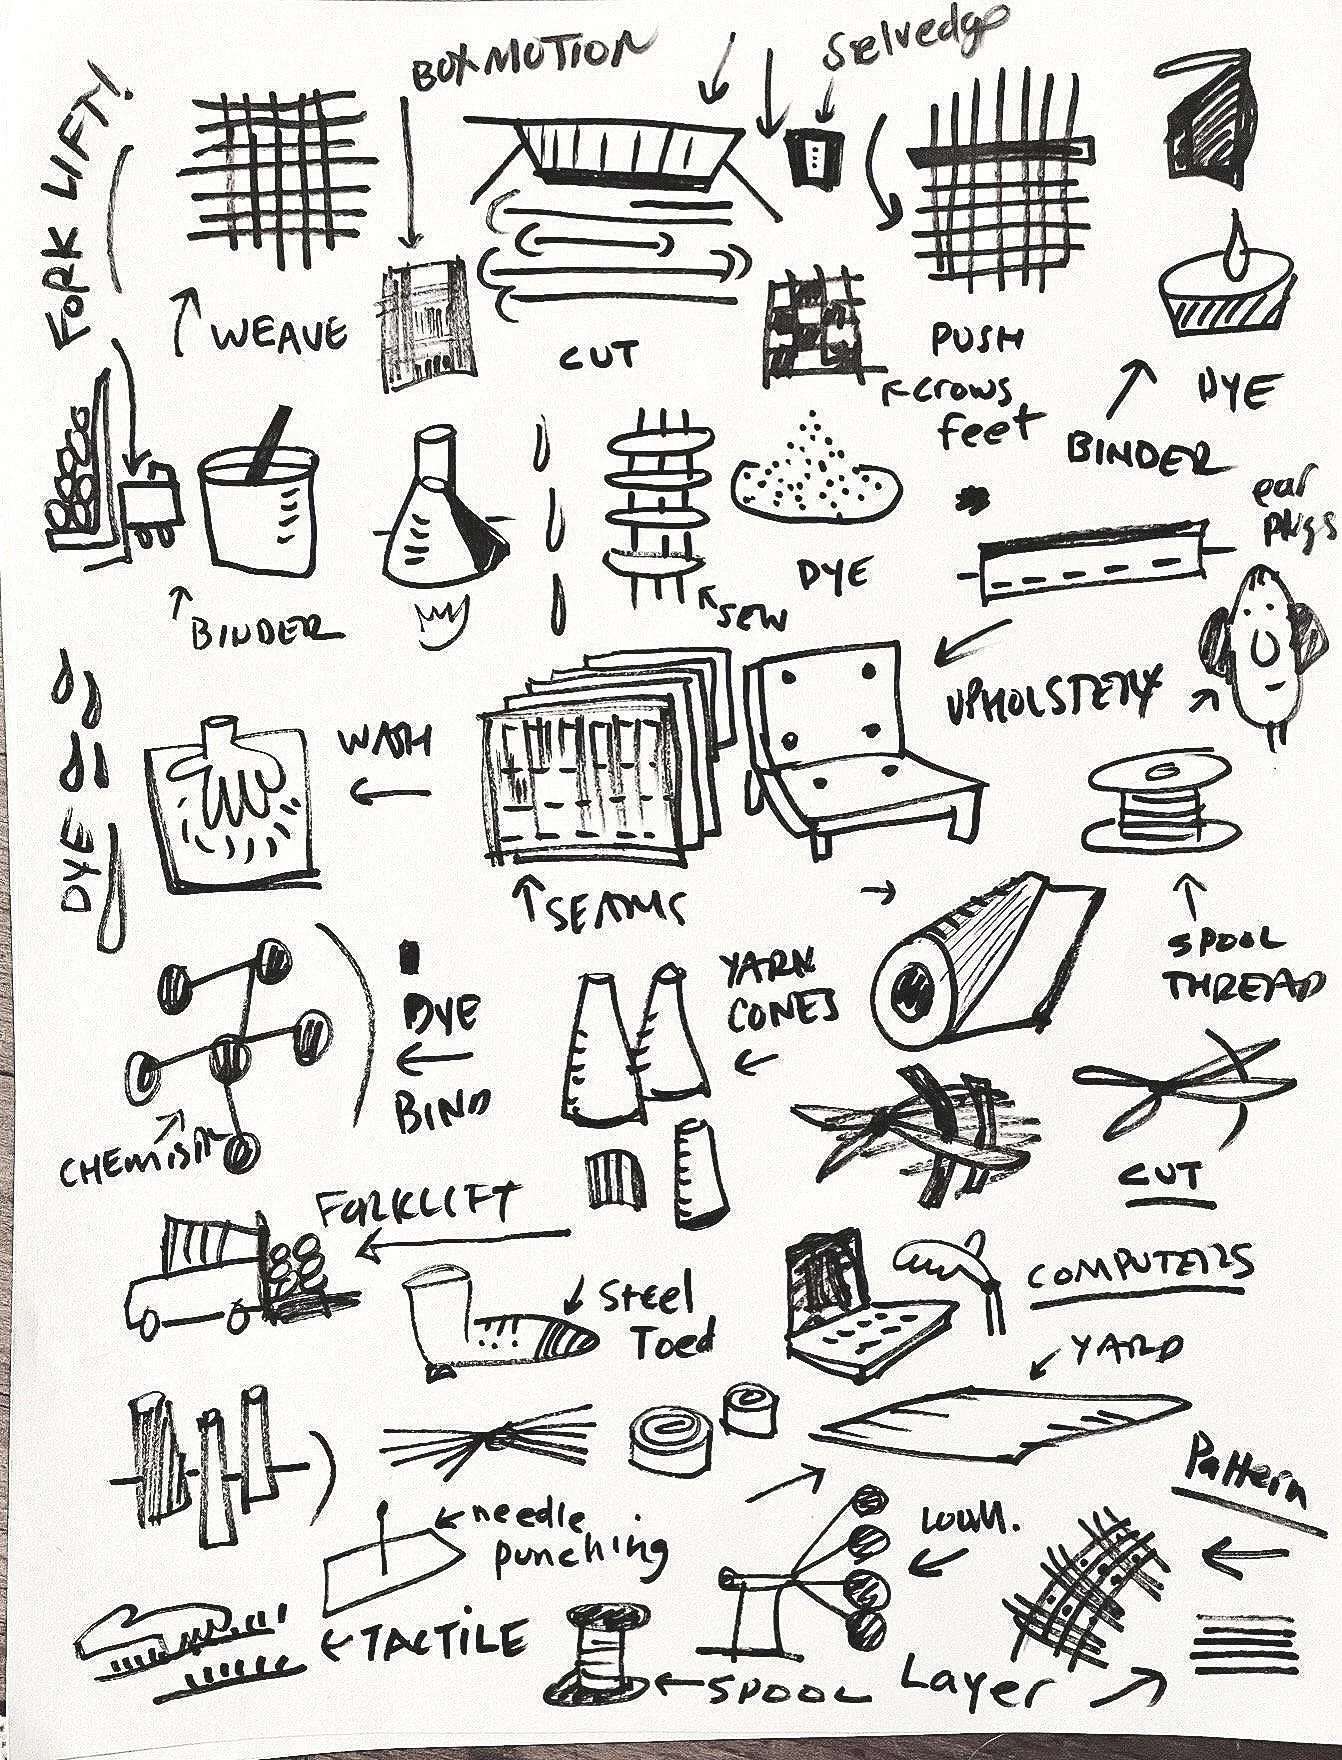 BOXMOTION
Selvedge
FORK LIFT!
WEAVE
CUT
PUSH
crows
feet
DYE
BINDER
ear
plugs
BINDER
SEW
DYE
UPHOLSTERY
WASH
DYE
SEAMS
SPOOL
THREAD
YARN
CONES
DYE
BIND
CHEMIST
CUT
FORKLIFT
Steel
Toed
COMPUTERS
YARD
Pattern
needle
punching
LOOM.
TACTILE
SPOOL
Layer